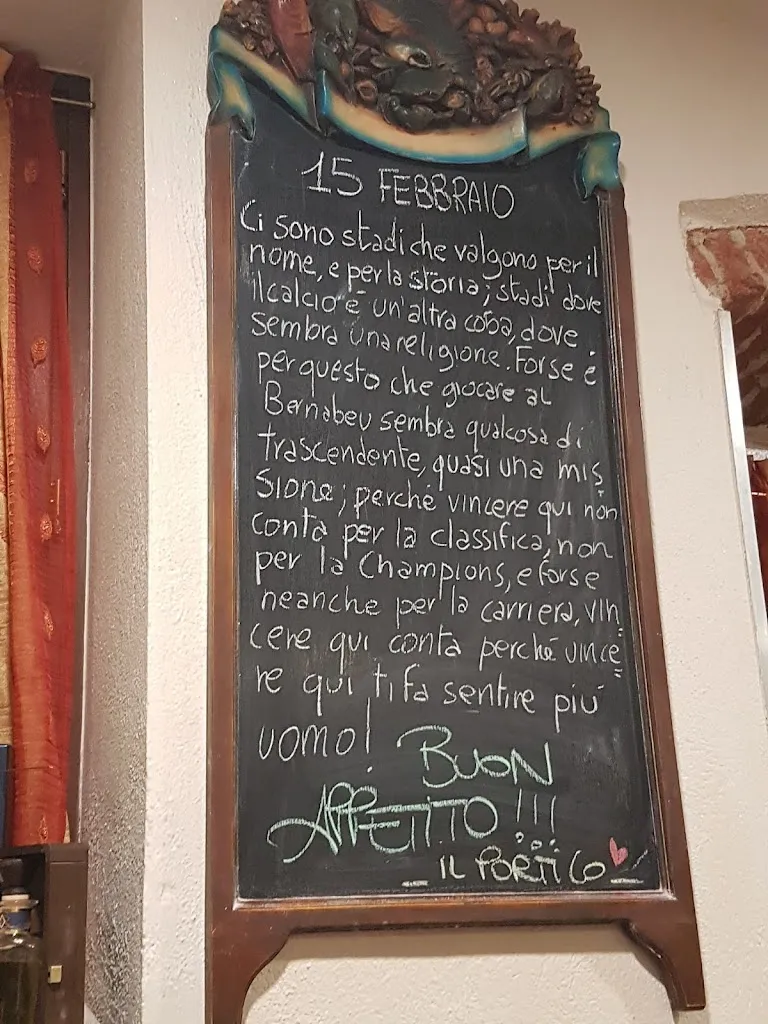 15 FEBBRAIO
Ci sono stadi che valgono per il
nome, e per la storia; stadi dove
il calcio è un'altra cosa, dove
sembra una religione. Forse è
per questo che giocare al
Bernabeu sembra qualcosa di
trascendente, quasi una mis
sione; perché vincere qui non
conta per la classifica, non
per la Champions, e forse
neanche per la carriera, vin
cere qui conta perché vince
re qui ti fa sentire più
uomo!
BUON
APPETITO!!!
IL PORTICO